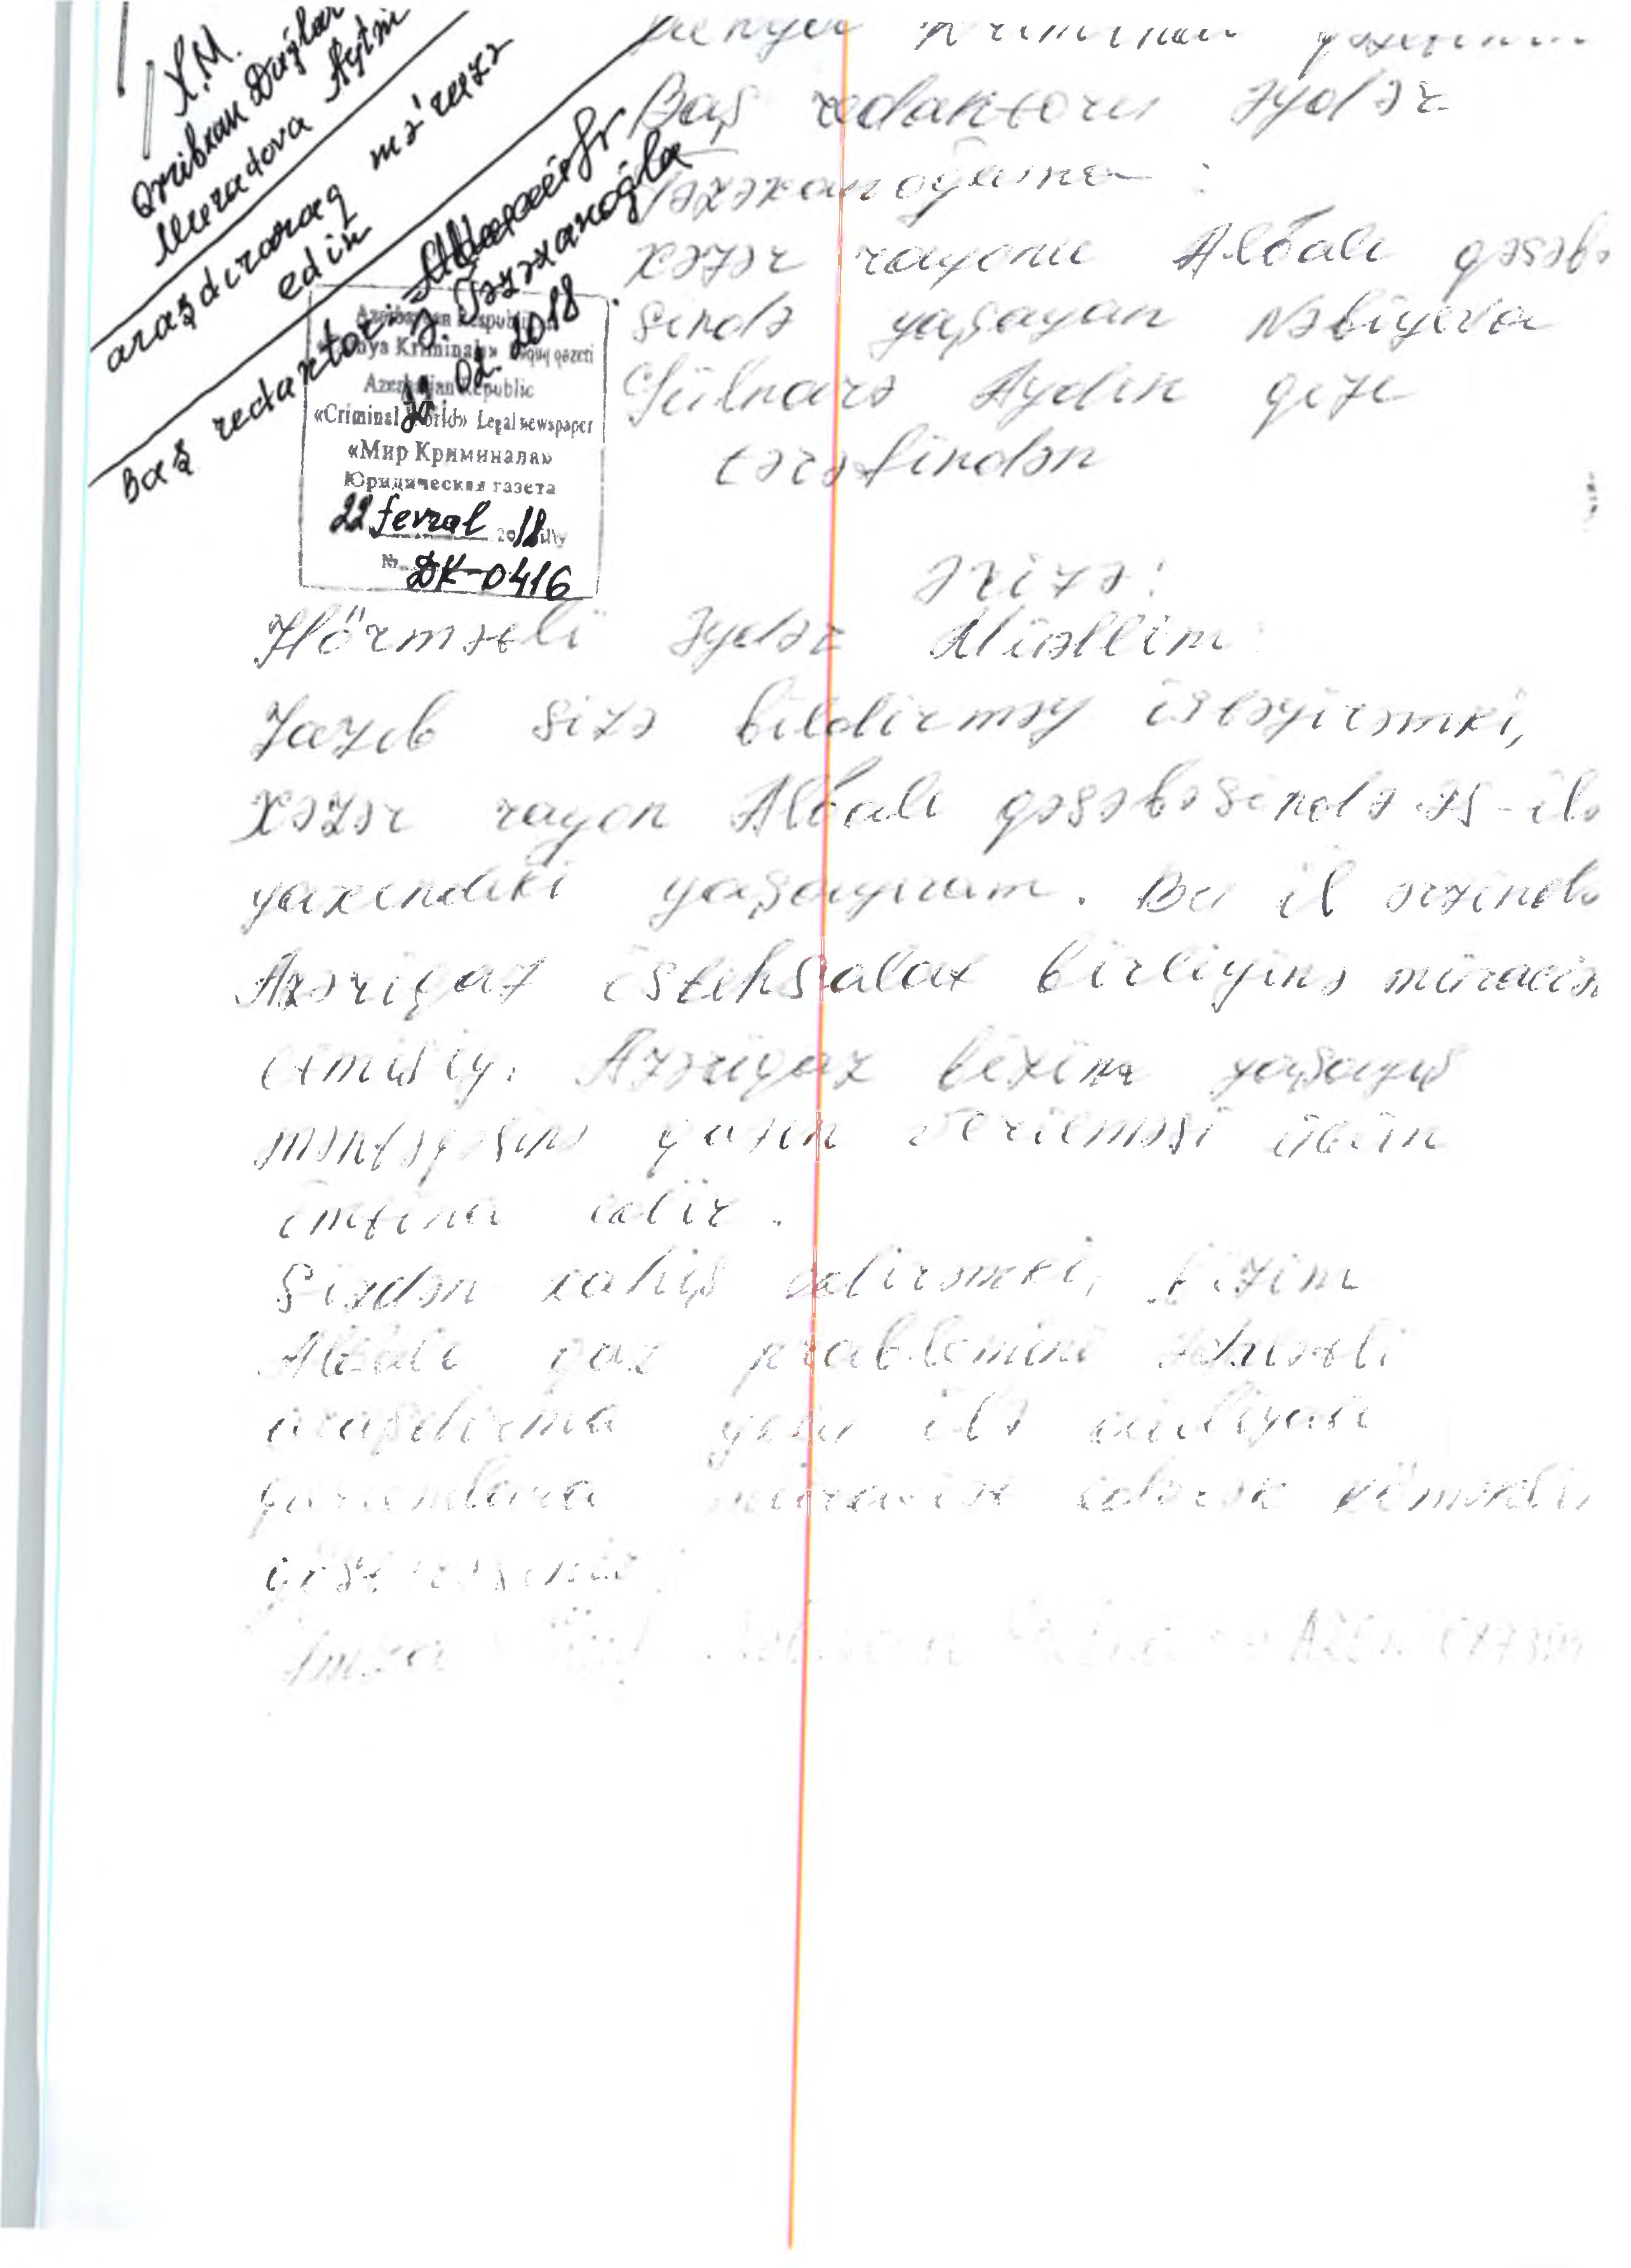 X.M.
Qəribxan Dağlar
Muradova Aytən
araşdıraraq mə'ruzə
edin
Baş redaktor - Ə. Təzəxanoğlu
22.02.2018.
Azərbaycan Respublikası
«Dünya Kriminalı» hüquq qəzeti
Azerbaijan Republic
«Criminal World» Legal newspaper
«Мир Криминала»
Юридическая газета
22 fevral 2018
№ DK-0416
Dünya Kriminal qəzetinin
Baş redaktoru Əydər
Təzəxanoğluna :
Xəzər rayonu Albalı qəsəbə
sində yaşayan Nəbiyeva
Gülnarə Aydın qızı
tərəfindən
Ərizə:
Hörmətli Əydər Müəllim
Yazıb sizə bildirməy istəyirəmki,
Xəzər rayon Albalı qəsəbəsində
yaxındıki yaşayıram. Bu il ərzində
Azəriqaz istehsalat birliyinə
etmişiy. Azəriqaz bizim yaşayış
məntəqəsinə qazın verilməsi üçün
imtina edir.
Sizdən xahiş edirəmki, bizim
Albalı qaz problemini
araşdırma yolu ilə aidiyatı
qurumlara müraciət edərək
göstərəsiniz
İmza